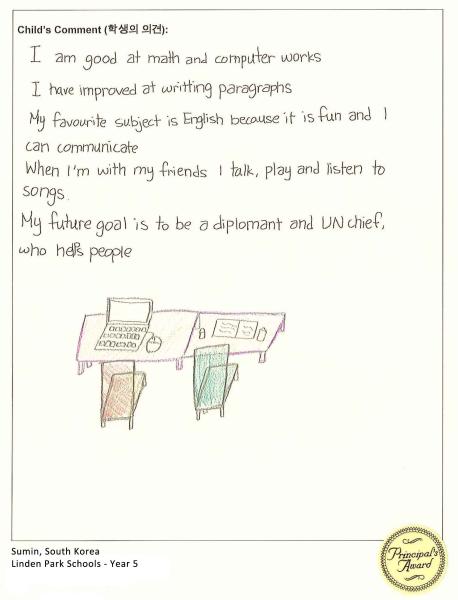 Child's Comment (학생의 의견):
I am good at math and computer works
I have improved at writting paragraphs
My favourite subject is English because it is fun and I
can communicate
When I'm with my friends I talk, play and listen to
songs.
My future goal is to be a diplomant and UN chief,
who helps people
Sumin, South Korea
Linden Park Schools - Year 5
Principal's
Award